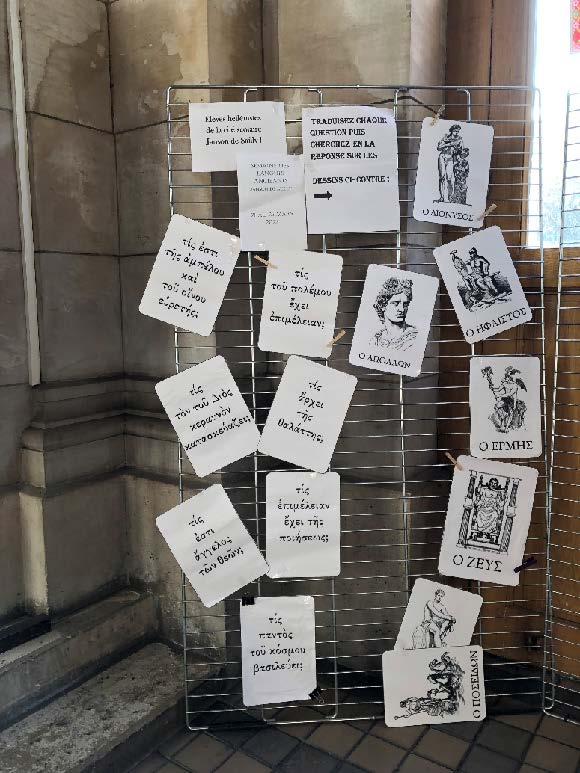 Elèves hellénistes
de la cité scolaire
Janson de Sailly !
SEMAINE DES
LANGUES
ANCIENNES
TRADUISEZ CHAQUE
QUESTION PUIS
CHERCHEZ EN LA
REPONSE SUR LES
DESSINS CI-CONTRE :
Ο ΔΙΟΝΥΣΟΣ
τίς ἐστι
τῆς ἀμπέλου
καὶ
τοῦ οἴνου
εὑρετής;
τίς
τοῦ πολέμου
ἔχει
ἐπιμέλειαν;
Ο ΑΠΟΛΛΩΝ
Ο ΗΦΑΙΣΤΟΣ
τίς
τὸν τοῦ Διὸς
κεραυνὸν
κατασκευάζει;
τίς
ἄρχει
τῆς
θαλάττης;
Ο ΕΡΜΗΣ
τίς
ἐστι
ἄγγελος
τῶν θεῶν;
τίς
ἐπιμέλειαν
ἔχει τῆς
ποιήσεως;
Ο ΖΕΥΣ
τίς
παντὸς
τοῦ κόσμου
βασιλεύει;
Ο ΠΟΣΕΙΔΩΝ